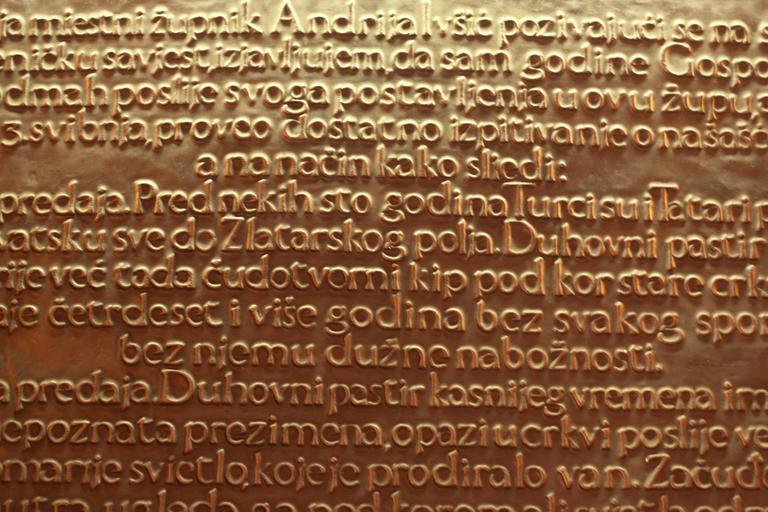 ja mjestni župnik Andrija Ivšić pozivajući se na s
eničku savjest, izjavljujem, da sam godine Gospo
dmah poslije svoga postavljenja u ovu župu, a
3. svibnja, proveo dostatno izpitivanje o našašć
a na način kako sliedi:
predaja. Pred nekih sto godina Turci su i Tatari p
vatsku sve do Zlatarskog polja. Duhovni pastir
rije već tada čudotvorni kip pod kor stare crk
aje četrdeset i više godina bez svakog spom
bez njemu dužne nabožnosti.
a predaja. Duhovni pastir kasnijeg vremena im
nepoznata prezimena, opazi u crkvi poslije ve
omarije svjetlo, koje je prodiralo van. Začuđe